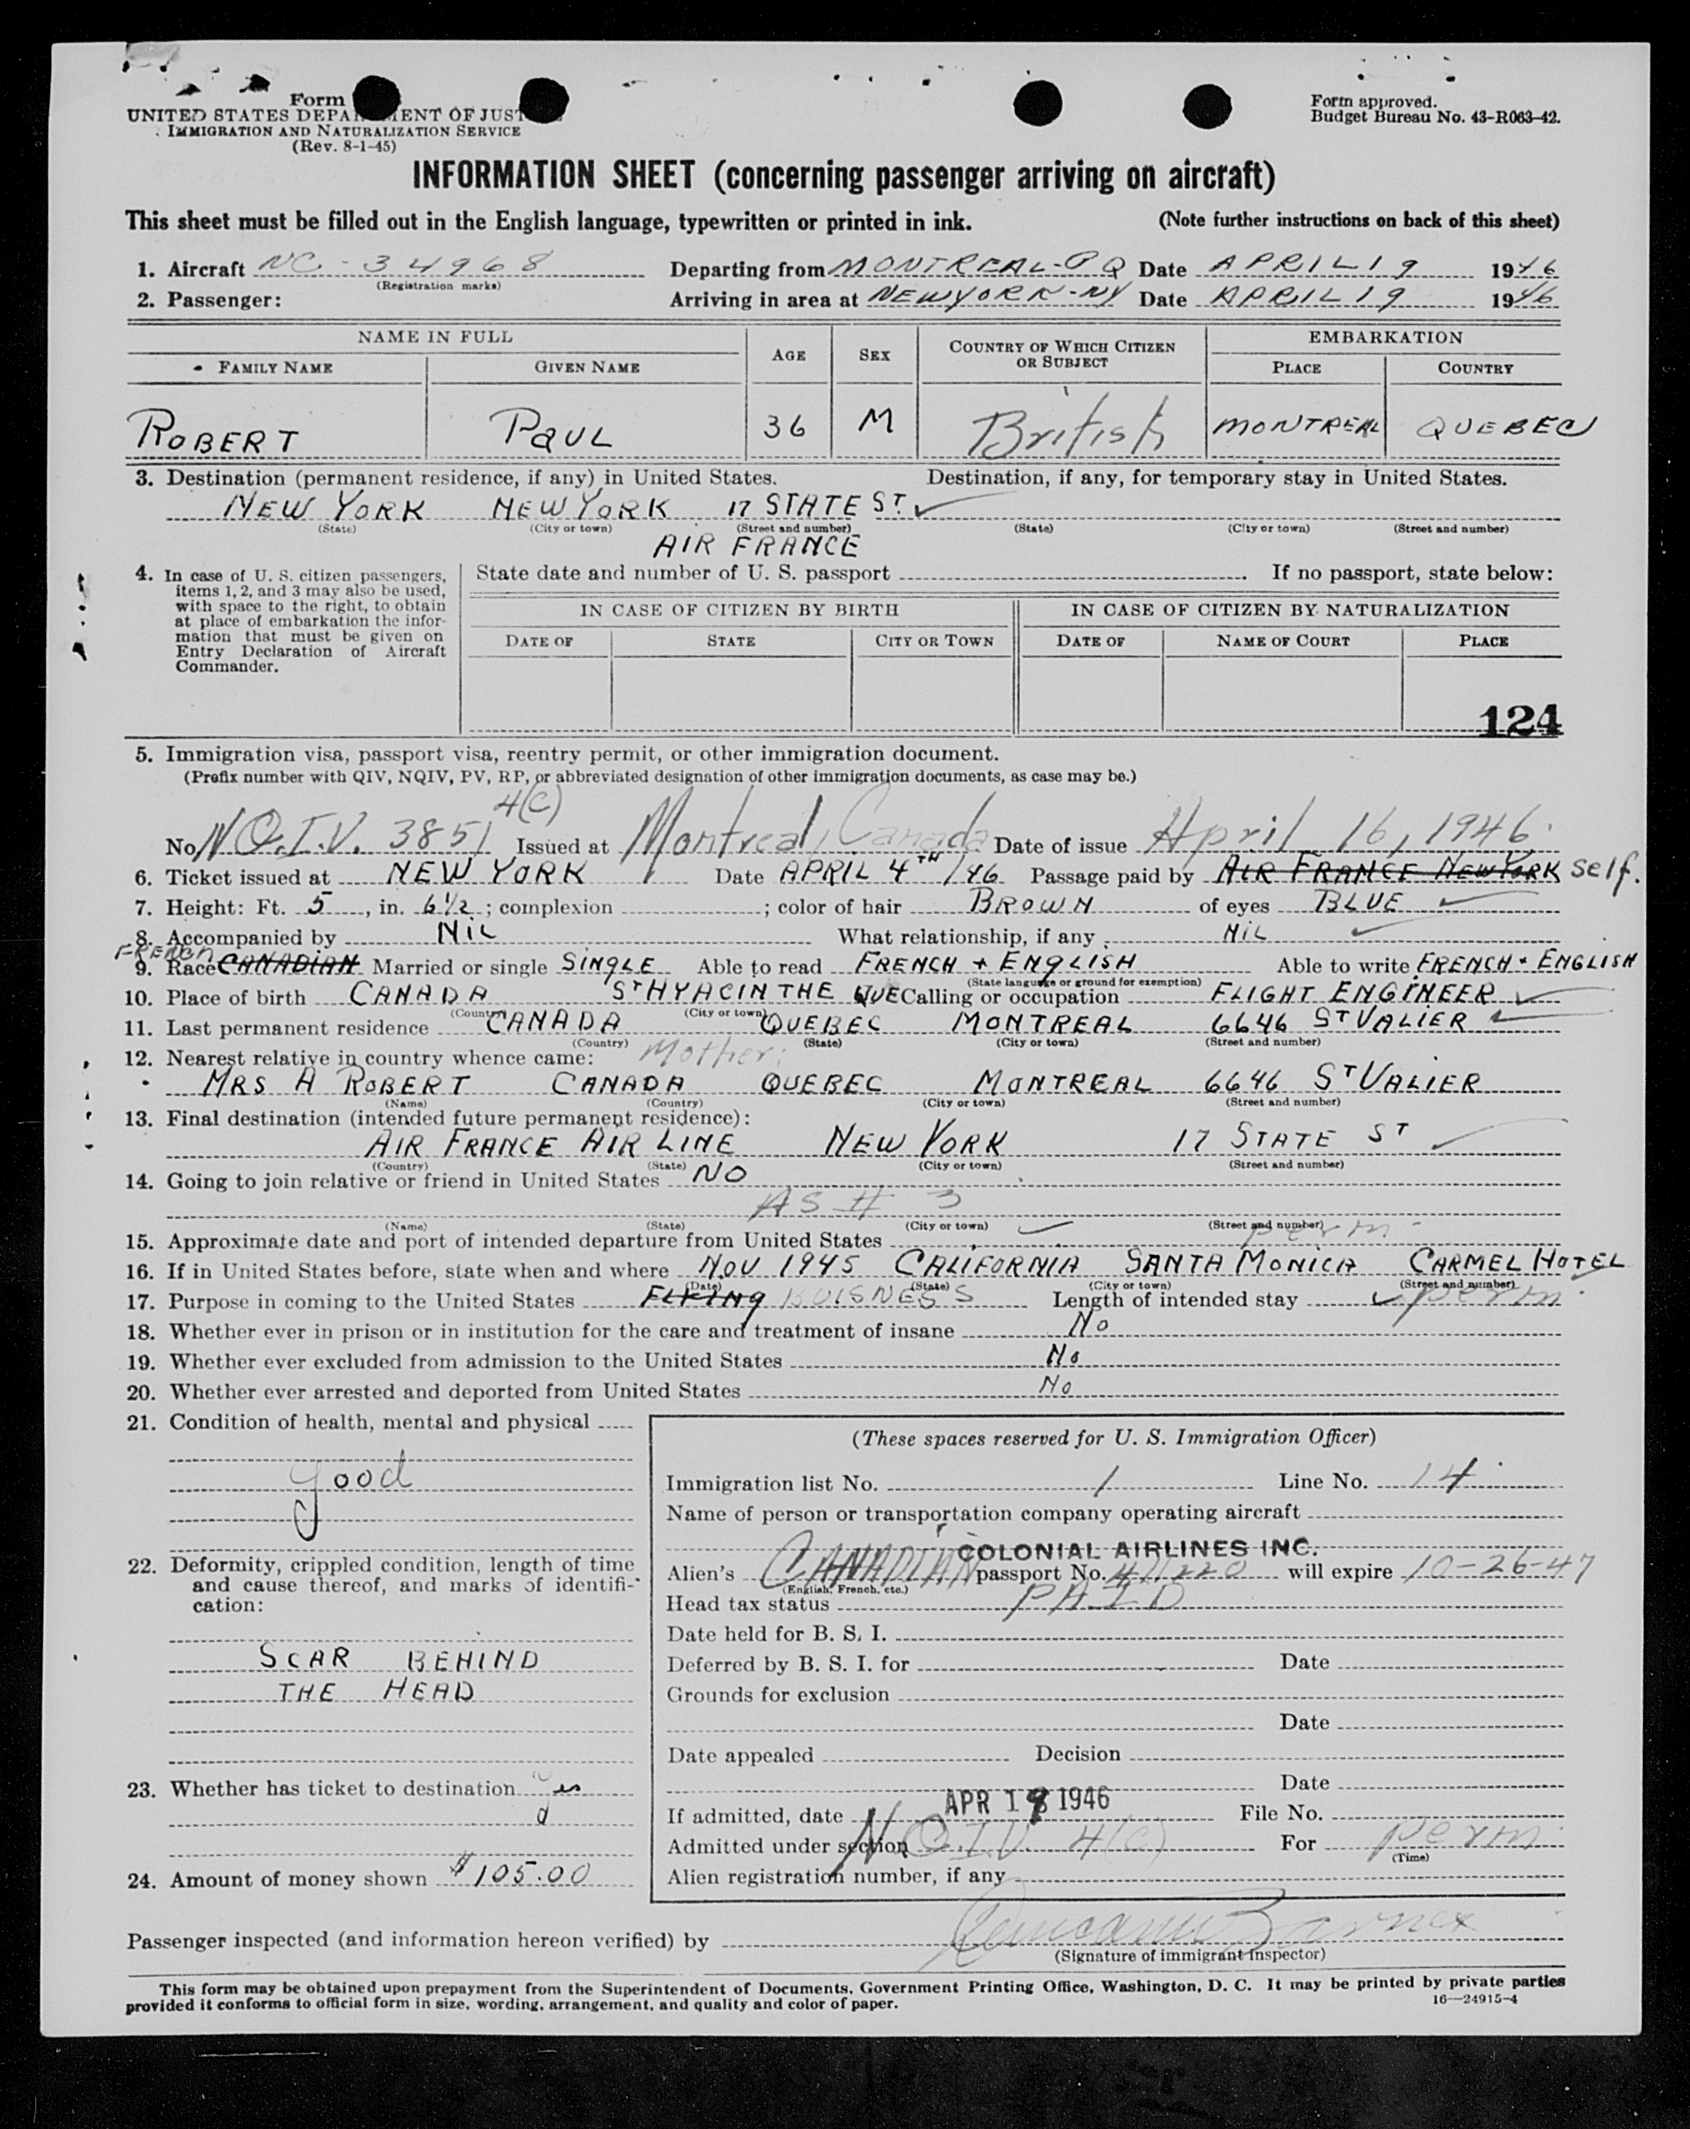 Form
UNITED STATES DEPARTMENT OF JUSTICE
IMMIGRATION AND NATURALIZATION SERVICE
(Rev. 8-1-45)
Form approved.
Budget Bureau No. 43-R063-42.
INFORMATION SHEET (concerning passenger arriving on aircraft)
This sheet must be filled out in the English language, typewritten or printed in ink. (Note further instructions on back of this sheet)
1. Aircraft NC-34968 Departing from MONTREAL-PQ Date APRIL 19 1946
(Registration marks)
2. Passenger: Arriving in area at NEW YORK-NY Date APRIL 19 1946
NAME IN FULL AGE SEX COUNTRY OF WHICH CITIZEN OR SUBJECT EMBARKATION
FAMILY NAME GIVEN NAME PLACE COUNTRY
ROBERT PAUL 36 M British MONTREAL QUEBEC
3. Destination (permanent residence, if any) in United States. Destination, if any, for temporary stay in United States.
NEW YORK NEW YORK 17 STATE ST.
(State) (City or town) (Street and number) (State) (City or town) (Street and number)
AIR FRANCE
4. In case of U. S. citizen passengers, items 1, 2, and 3 may also be used, with space to the right, to obtain at place of embarkation the information that must be given on Entry Declaration of Aircraft Commander.
State date and number of U. S. passport If no passport, state below:
IN CASE OF CITIZEN BY BIRTH IN CASE OF CITIZEN BY NATURALIZATION
DATE OF STATE CITY OR TOWN DATE OF NAME OF COURT PLACE
124
5. Immigration visa, passport visa, reentry permit, or other immigration document.
(Prefix number with QIV, NQIV, PV, RP, or abbreviated designation of other immigration documents, as case may be.)
4(C)
No. N.Q.I.V. 3851 Issued at Montreal, Canada Date of issue April 16, 1946
6. Ticket issued at NEW YORK Date APRIL 4TH /46 Passage paid by AIR FRANCE NEW YORK self.
7. Height: Ft. 5, in. 6 1/2; complexion ; color of hair BROWN of eyes BLUE
8. Accompanied by NIL What relationship, if any NIL
FRENCH
9. Race CANADIAN Married or single SINGLE Able to read FRENCH + ENGLISH Able to write FRENCH + ENGLISH
(State language or ground for exemption)
10. Place of birth CANADA ST HYACINTHE QUE Calling or occupation FLIGHT ENGINEER
(Country) (City or town)
11. Last permanent residence CANADA QUEBEC MONTREAL 6646 ST VALIER
(Country) (State) (City or town) (Street and number)
12. Nearest relative in country whence came: Mother:
MRS A ROBERT CANADA QUEBEC MONTREAL 6646 ST VALIER
(Name) (Country) (City or town) (Street and number)
13. Final destination (intended future permanent residence):
AIR FRANCE AIR LINE NEW YORK 17 STATE ST
(Country) (State) (City or town) (Street and number)
14. Going to join relative or friend in United States NO
AS # 3
(Name) (State) (City or town) (Street and number)
15. Approximate date and port of intended departure from United States perm
16. If in United States before, state when and where NOV 1945 CALIFORNIA SANTA MONICA CARMEL HOTEL
(Date) (State) (City or town) (Street and number)
17. Purpose in coming to the United States FLYING BUISNESS Length of intended stay perm.
18. Whether ever in prison or in institution for the care and treatment of insane No
19. Whether ever excluded from admission to the United States No
20. Whether ever arrested and deported from United States No
21. Condition of health, mental and physical
good
22. Deformity, crippled condition, length of time and cause thereof, and marks of identification:
SCAR BEHIND
THE HEAD
23. Whether has ticket to destination Yes
24. Amount of money shown $105.00
(These spaces reserved for U. S. Immigration Officer)
Immigration list No. 1 Line No. 14
Name of person or transportation company operating aircraft
COLONIAL AIRLINES INC.
Alien's CANADIAN passport No. will expire 10-26-47
(English, French, etc.)
Head tax status PAID
Date held for B. S. I.
Deferred by B. S. I. for Date
Grounds for exclusion
Date
Date appealed Decision
Date
If admitted, date APR 19 1946 File No.
Admitted under section N.Q.I.V. 4(C) For perm
(Time)
Alien registration number, if any
Passenger inspected (and information hereon verified) by
(Signature of immigrant inspector)
This form may be obtained upon prepayment from the Superintendent of Documents, Government Printing Office, Washington, D. C. It may be printed by private parties
provided it conforms to official form in size, wording, arrangement, and quality and color of paper.
16—24915-4